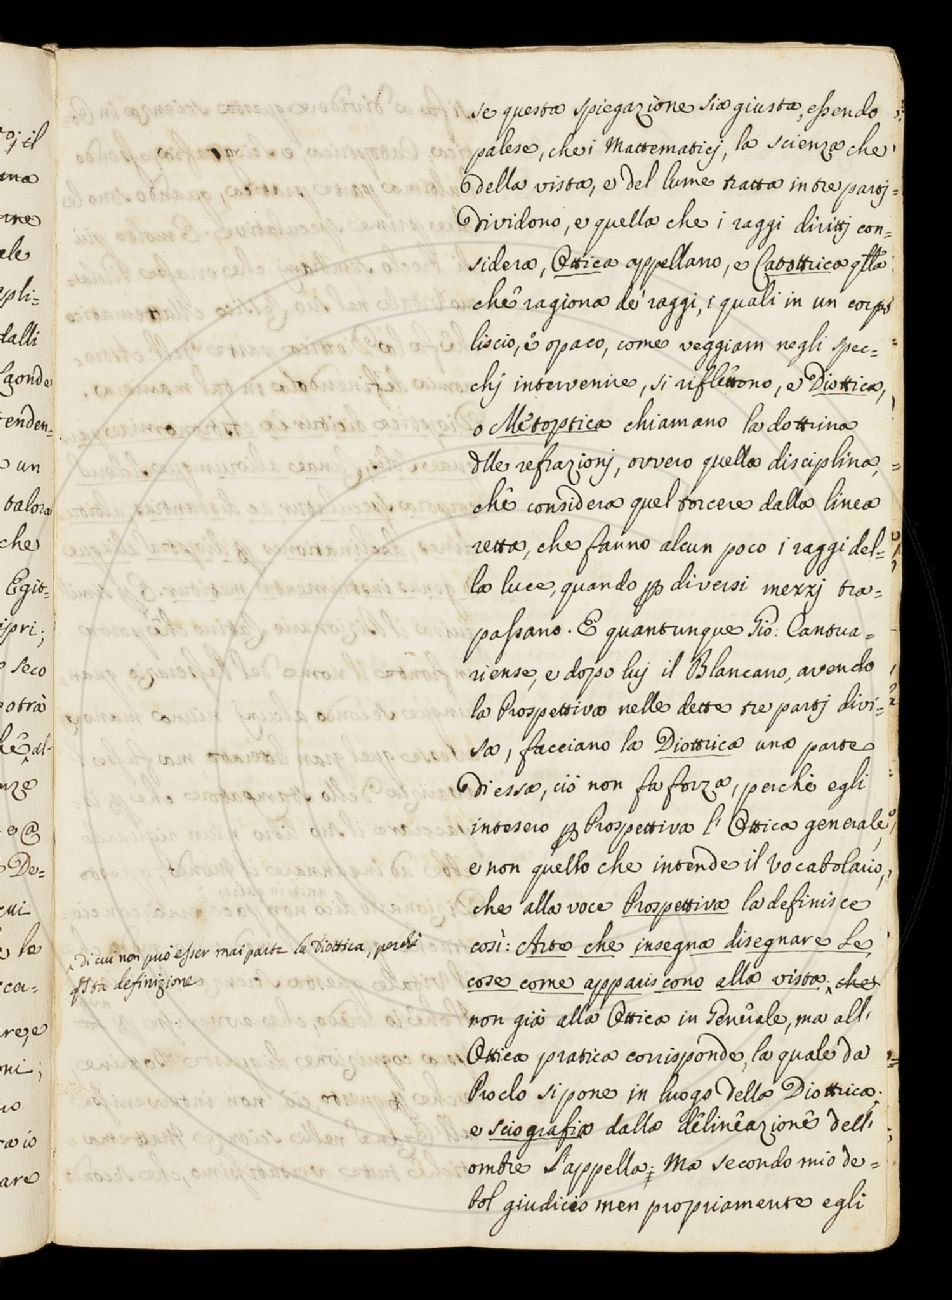 se questa spiegazione sia giusta, essendo
palese, che i Mattematicj, la scienza che
della vista, e del lume tratta in tre partj
dividono, e quella che i raggi dirittj con=
sidera, Ottica appellano, e Catottrica qlla
che ragiona de' raggi, i quali in un corpo
liscio, ò opaco, come veggiam negli spec=
chj intervenire, si riflettono, e Diottica,
o Mesoptica chiamano la dottrina
dlle refrazionj, ovvero quella disciplina,
che considera quel torcere dalla linea
retta, che fanno alcun poco i raggi del=
la luce, quando p diversi mezzj tra=
passano. E quantunque Gio: Cantua=
riense, e dopo luj il Blancano, avendo
la Prospettiva nelle dette tre partj divi=
sa, facciano la Diottrica una parte
di essa, ciò non fa forza, perchè egli
intesero p Prospettiva l' Ottica generale,
e non quello che intende il Vocabolario,
che alla voce Prospettiva la definisce
così: Arte che insegna disegnare le
cose come appariscono alla vista, che
non già alla Ottica in Generale, ma all'
Ottica pratica corrisponde, la quale da
Proclo si pone in luogo della Diottrica,
e sciografia dalla delineazione dell'
ombre s'appella; Ma secondo mio de=
bol giudicio men propriamente egli
di cui non può esser mai parte la Diottica, perchè
qsta definizione
oj il
ale
pli=
dalli
Laonde
tenden=
un
talora
che
Egit=
ipri;
seco
potrà
al=
e @
De=
cui
la
cca=
are, e
oni;
are